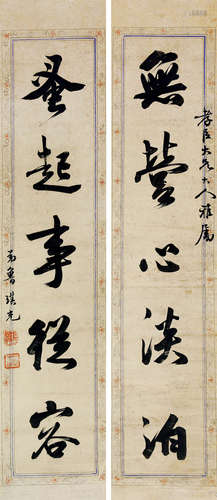 孝臣大兄大人雅屬
無營心淡泊
蚤起事從容
弟魯琪光